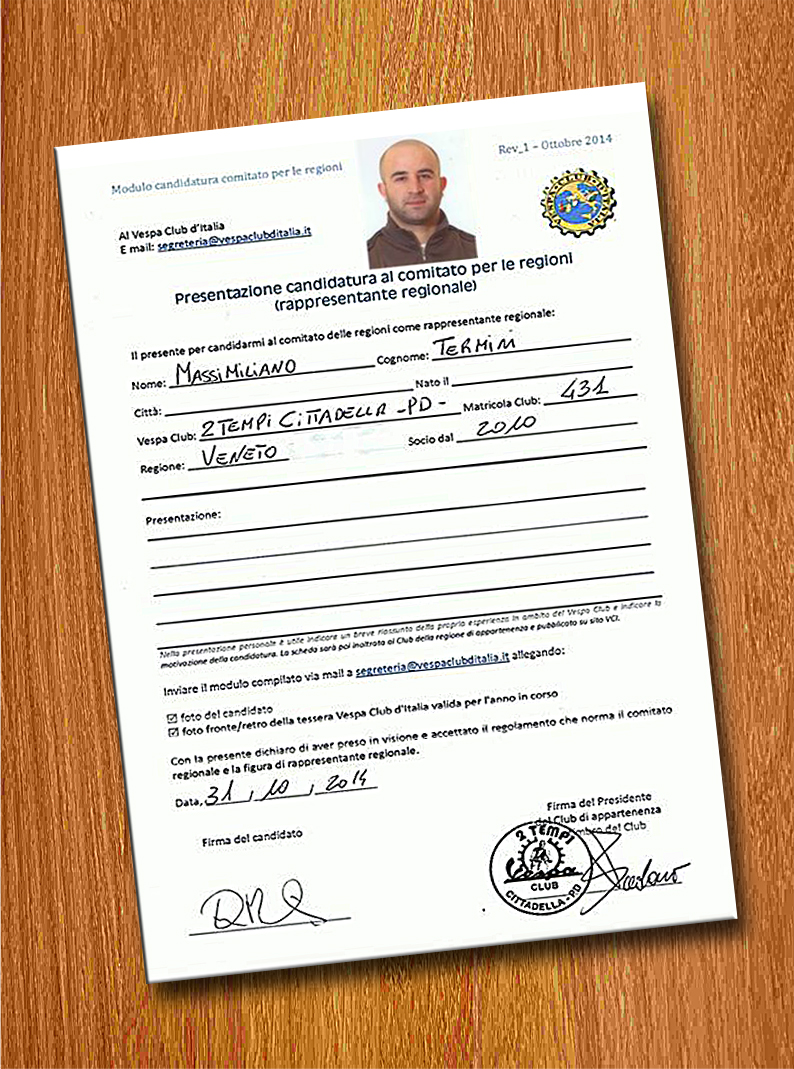 Modulo candidatura comitato per le regioni
Rev_1 – Ottobre 2014
VESPA CLUB D'ITALIA
Al Vespa Club d'Italia
E mail: segreteria@vespaclubditalia.it
Presentazione candidatura al comitato per le regioni
(rappresentante regionale)
Il presente per candidarmi al comitato delle regioni come rappresentante regionale:
Nome: MASSIMILIANO Cognome: TERMINI
Città: Nato il
Vespa Club: 2 TEMPI CITTADELLA -PD- Matricola Club: 431
Regione: VENETO Socio dal 2010
Presentazione:
Nella presentazione personale è utile indicare un breve riassunto della propria esperienza in ambito del Vespa Club e indicare la
motivazione della candidatura. La scheda sarà poi inoltrata ai Club della regione di appartenenza e pubblicata su sito VCI.
Inviare il modulo compilato via mail a segreteria@vespaclubditalia.it allegando:
☑ foto del candidato
☑ foto fronte/retro della tessera Vespa Club d'Italia valida per l'anno in corso
Con la presente dichiaro di aver preso in visione e accettato il regolamento che norma il comitato
regionale e la figura di rappresentante regionale.
Data, 31 , 10 , 2014
Firma del candidato
Firma del Presidente
del Club di appartenenza
timbro del Club
2 TEMPI
Vespa
CLUB
CITTADELLA - PD